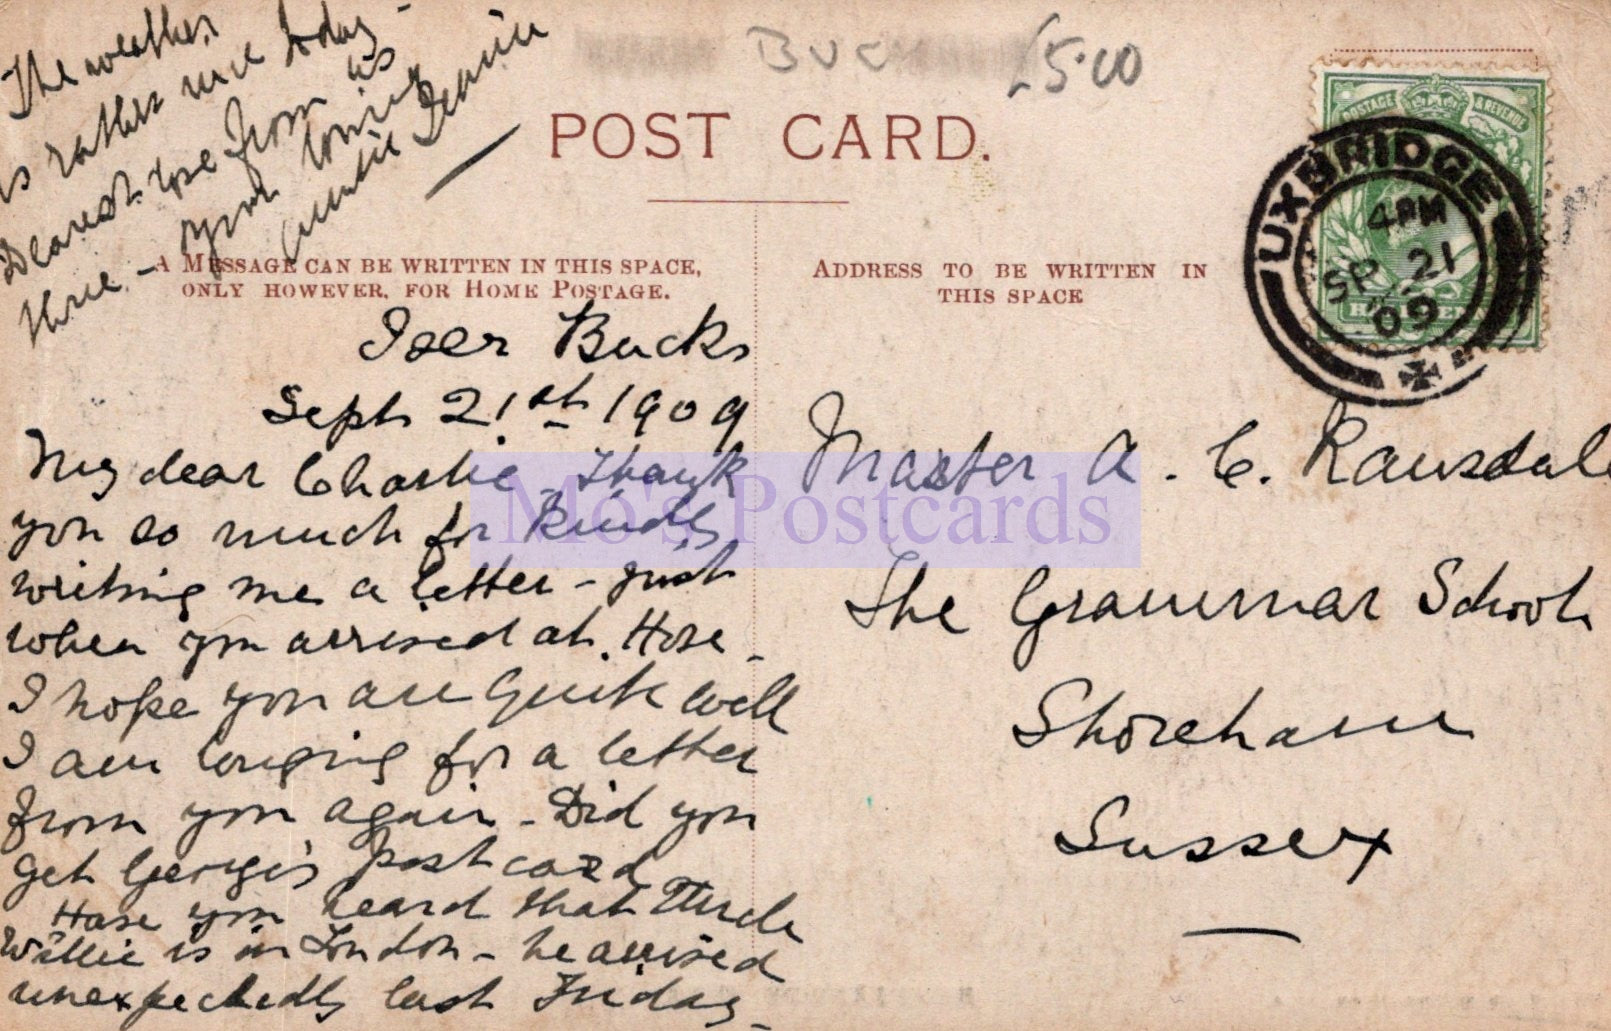 The weather
is rather nice today -
Dearest love from us
three - your loving
Auntie
BUC £5.00
POST CARD.
A MESSAGE CAN BE WRITTEN IN THIS SPACE,
ONLY HOWEVER, FOR HOME POSTAGE.
ADDRESS TO BE WRITTEN IN
THIS SPACE
POSTAGE & REVENUE
UXBRIDGE
4 PM
SP 21
09
Iver Bucks
Sept 21st 1909
My dear Charlie - Thank
you so much for kindly
writing me a letter - just
when you arrived at Hove -
I hope you are quite well
I am longing for a letter
from you again - Did you
get Georgie's post card
Have you heard that Uncle
Willie is in London - he arrived
unexpectedly last Friday -
Master A. C. Ransdale
The Grammar School
Shoreham
Sussex
Mo's Postcards